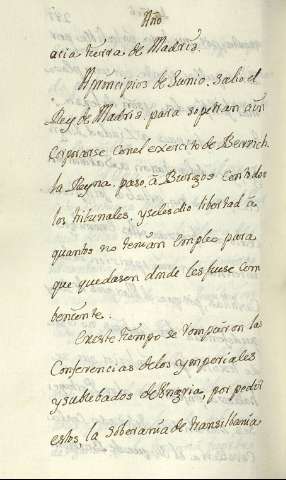 Año
acia tierra de Madrid.
A principios de Junio. salio el
Rey de Madrid para sopetran a in
corporarse con el exercito de Bervich.
la Reyna paso, à Burgos con todos
los tribunales, y seles dio libertad à
quantos no tenian Empleo para
que quedasen donde les fuese com
beniente.
En este tiempo se rompieron las
Conferencias de los ymperiales
y sublebados de Ungria, por pedir
estos, la soberania de transilbania